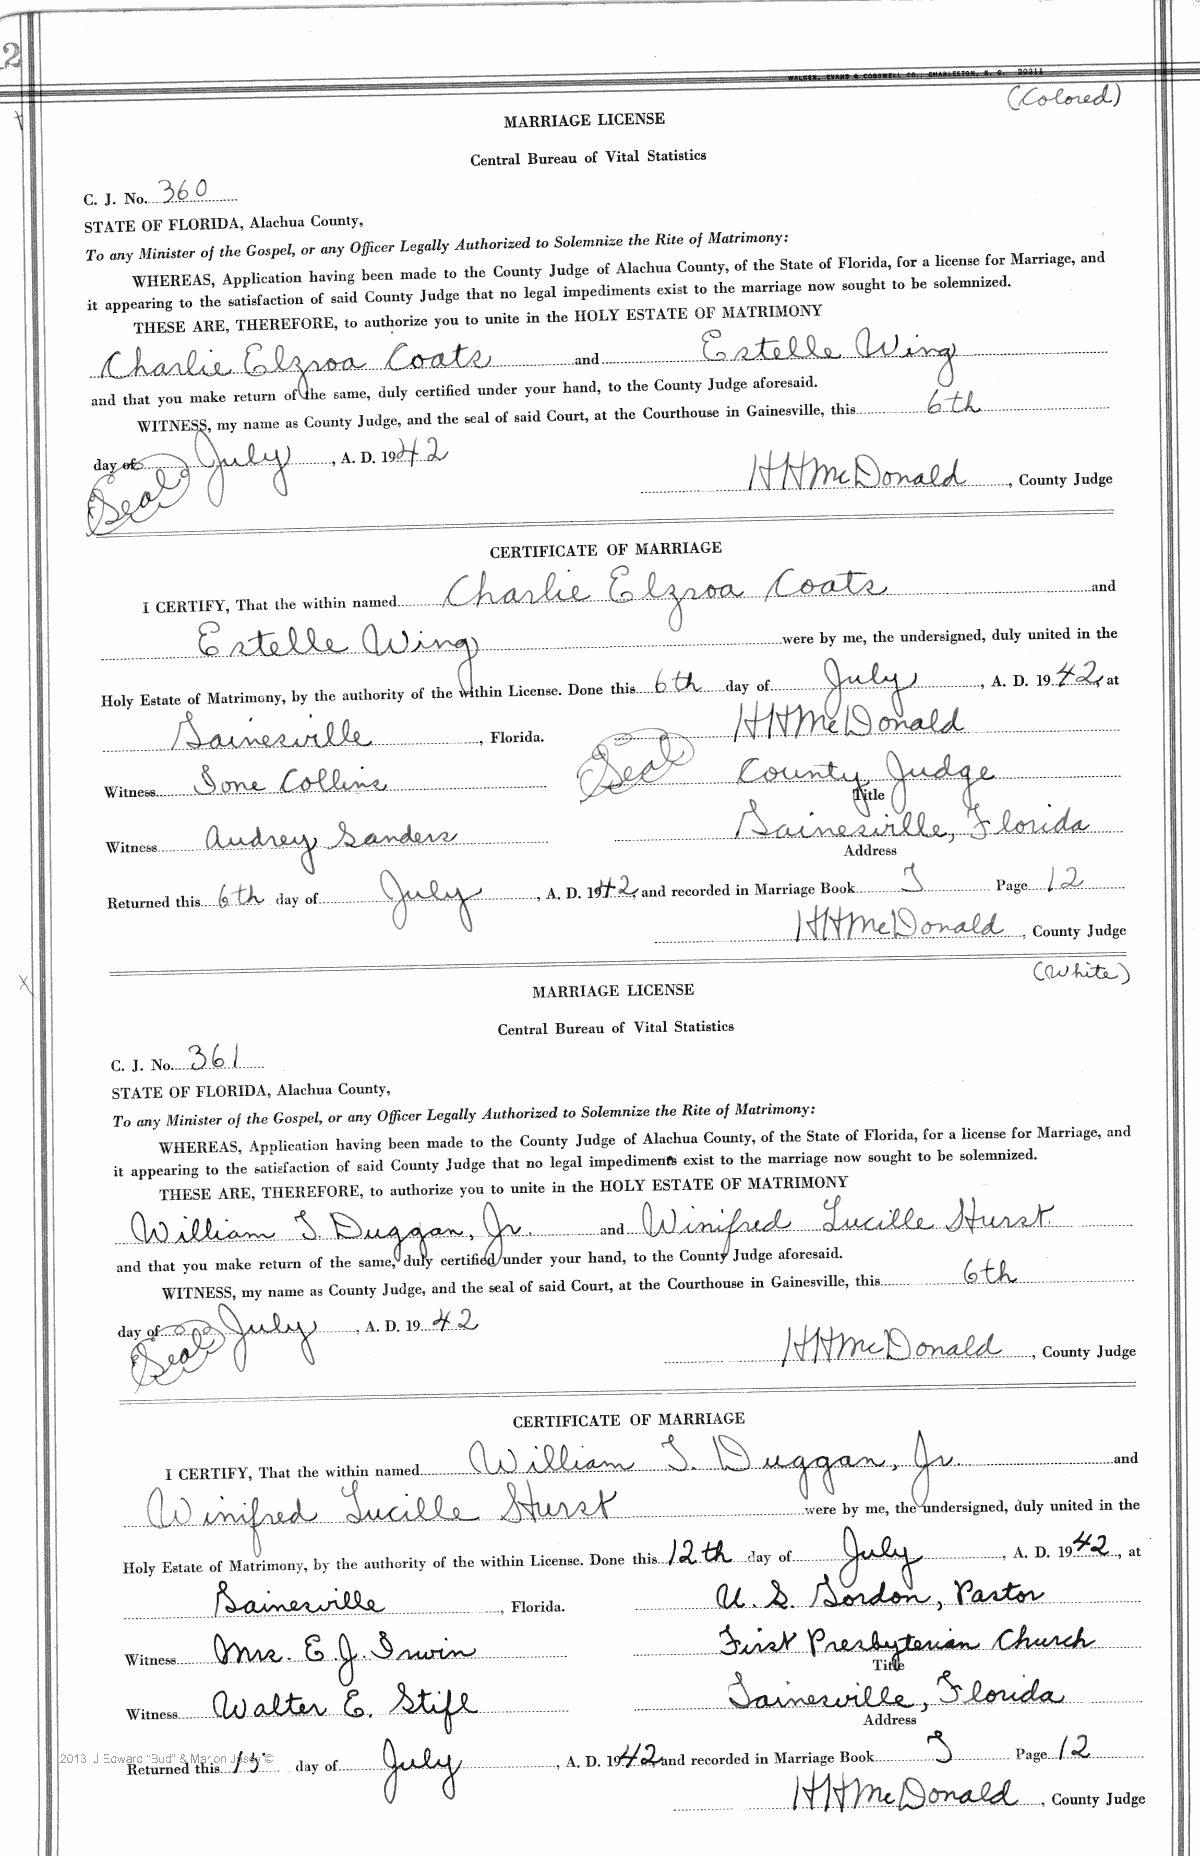 2
WALKER, EVANS & COGSWELL CO., CHARLESTON, S. C. 30211
(Colored)
MARRIAGE LICENSE
Central Bureau of Vital Statistics
C. J. No. 360
STATE OF FLORIDA, Alachua County,
To any Minister of the Gospel, or any Officer Legally Authorized to Solemnize the Rite of Matrimony:
WHEREAS, Application having been made to the County Judge of Alachua County, of the State of Florida, for a license for Marriage, and
it appearing to the satisfaction of said County Judge that no legal impediments exist to the marriage now sought to be solemnized.
THESE ARE, THEREFORE, to authorize you to unite in the HOLY ESTATE OF MATRIMONY
Charlie Elzroa Coats and Estelle Wing
and that you make return of the same, duly certified under your hand, to the County Judge aforesaid.
WITNESS, my name as County Judge, and the seal of said Court, at the Courthouse in Gainesville, this 6th
day of July, A. D. 1942
(Seal) HHMcDonald, County Judge
CERTIFICATE OF MARRIAGE
I CERTIFY, That the within named Charlie Elzroa Coats and
Estelle Wing were by me, the undersigned, duly united in the
Holy Estate of Matrimony, by the authority of the within License. Done this 6th day of July, A. D. 1942, at
Gainesville, Florida. HHMcDonald
(Seal) County Judge
Witness Ione Collins Title
Witness Audrey Sanders Gainesville, Florida
Address
Returned this 6th day of July, A. D. 1942, and recorded in Marriage Book J Page 12
HHMcDonald, County Judge
(White)
MARRIAGE LICENSE
Central Bureau of Vital Statistics
C. J. No. 361
STATE OF FLORIDA, Alachua County,
To any Minister of the Gospel, or any Officer Legally Authorized to Solemnize the Rite of Matrimony:
WHEREAS, Application having been made to the County Judge of Alachua County, of the State of Florida, for a license for Marriage, and
it appearing to the satisfaction of said County Judge that no legal impediments exist to the marriage now sought to be solemnized.
THESE ARE, THEREFORE, to authorize you to unite in the HOLY ESTATE OF MATRIMONY
William J. Duggan, Jr. and Winifred Lucille Hurst
and that you make return of the same, duly certified under your hand, to the County Judge aforesaid.
WITNESS, my name as County Judge, and the seal of said Court, at the Courthouse in Gainesville, this 6th
day of July, A. D. 1942
(Seal) HHMcDonald, County Judge
CERTIFICATE OF MARRIAGE
I CERTIFY, That the within named William J. Duggan, Jr. and
Winifred Lucille Hurst were by me, the undersigned, duly united in the
Holy Estate of Matrimony, by the authority of the within License. Done this 12th day of July, A. D. 1942, at
Gainesville, Florida. U. S. Gordon, Pastor
Witness Mrs. E. J. Irwin First Presbyterian Church
Title
Witness Walter E. Stifl Gainesville, Florida
Address
2013 J Edward "Bud" & Marion Josey ©
Returned this 15 day of July, A. D. 1942 and recorded in Marriage Book J Page 12
HHMcDonald, County Judge